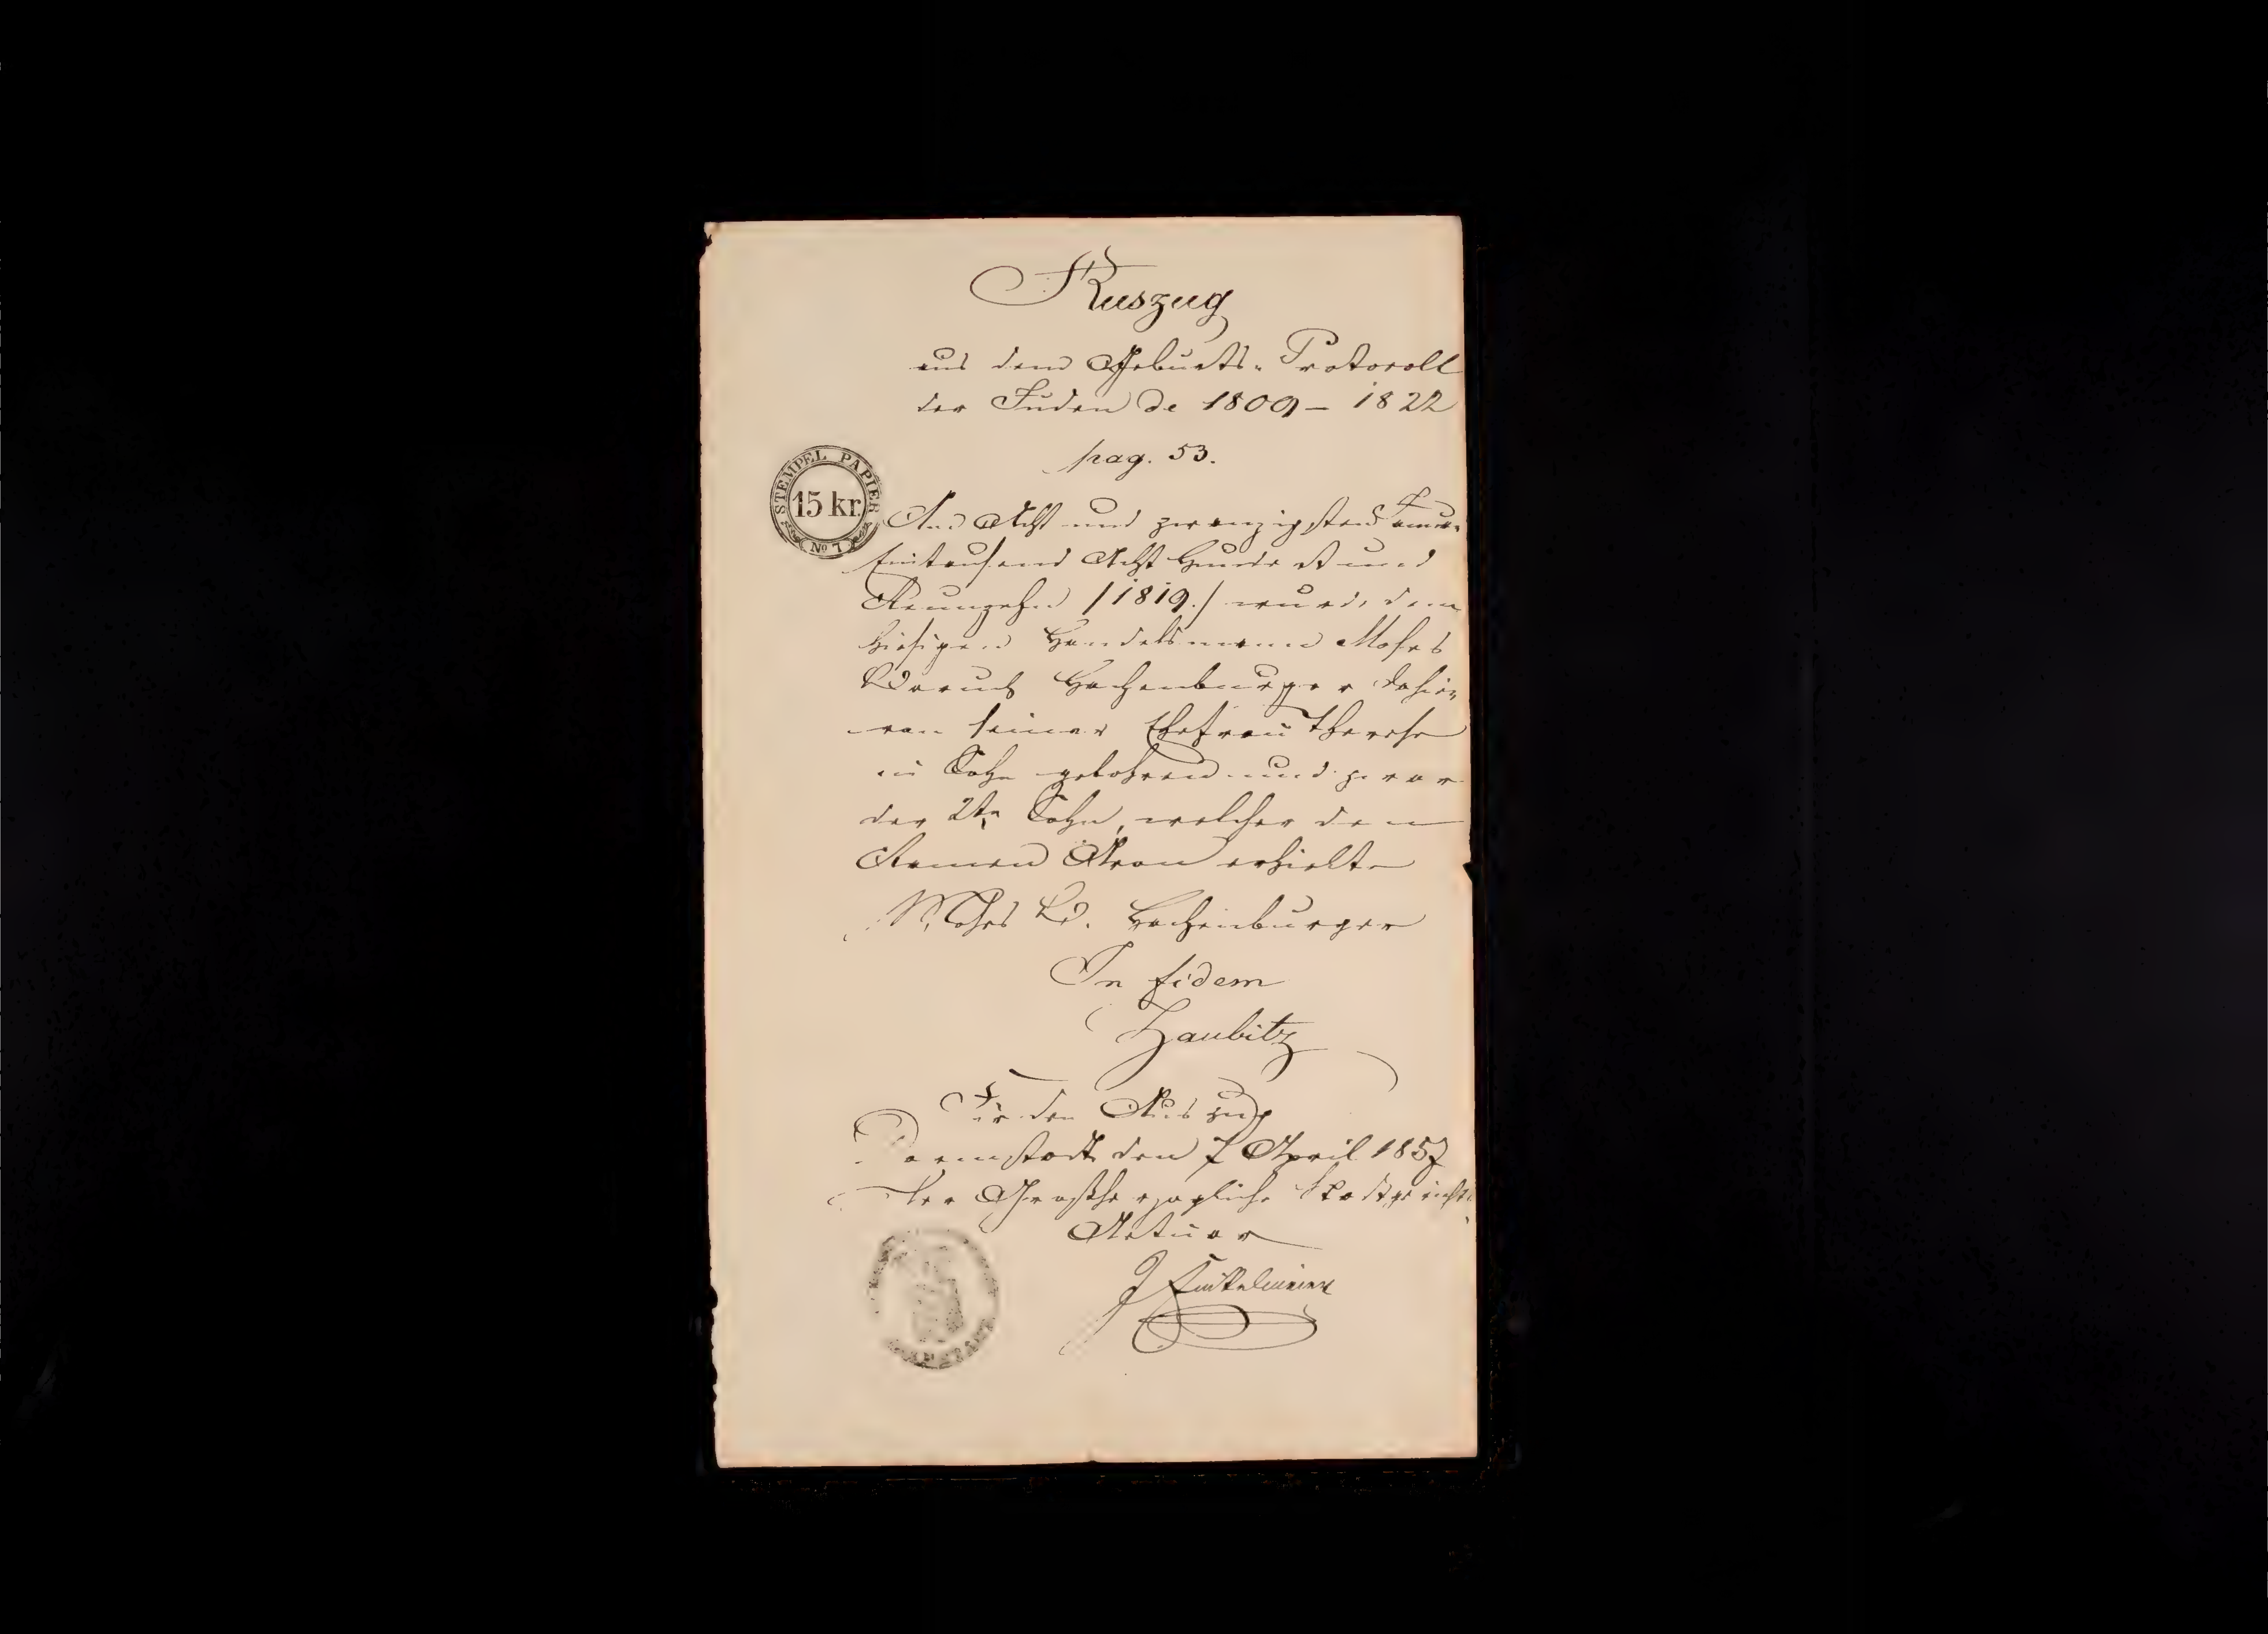 Auszug
aus dem Geburts-Protocoll
der Juden de 1809 – 1822
pag. 53.
STEMPEL PAPIER
15 kr.
No 7
Am Acht und zwanzigsten Januar
Eintausend Acht Hundert und
Neunzehn /1819./ wurde dem
hiesigen Handelsmann Moses
Baruch Hachenburger dahier
von seiner Ehefrau Therese
ein Sohn gebohren und zwar
der 2te Sohn, welcher den
Namen Aron erhielte
Moses B. Hachenburger
In fidem
Haubitz
Für den Auszug
Darmstadt den 7 April 1857
Der Großherzogliche Stadtgerichts
Actuar